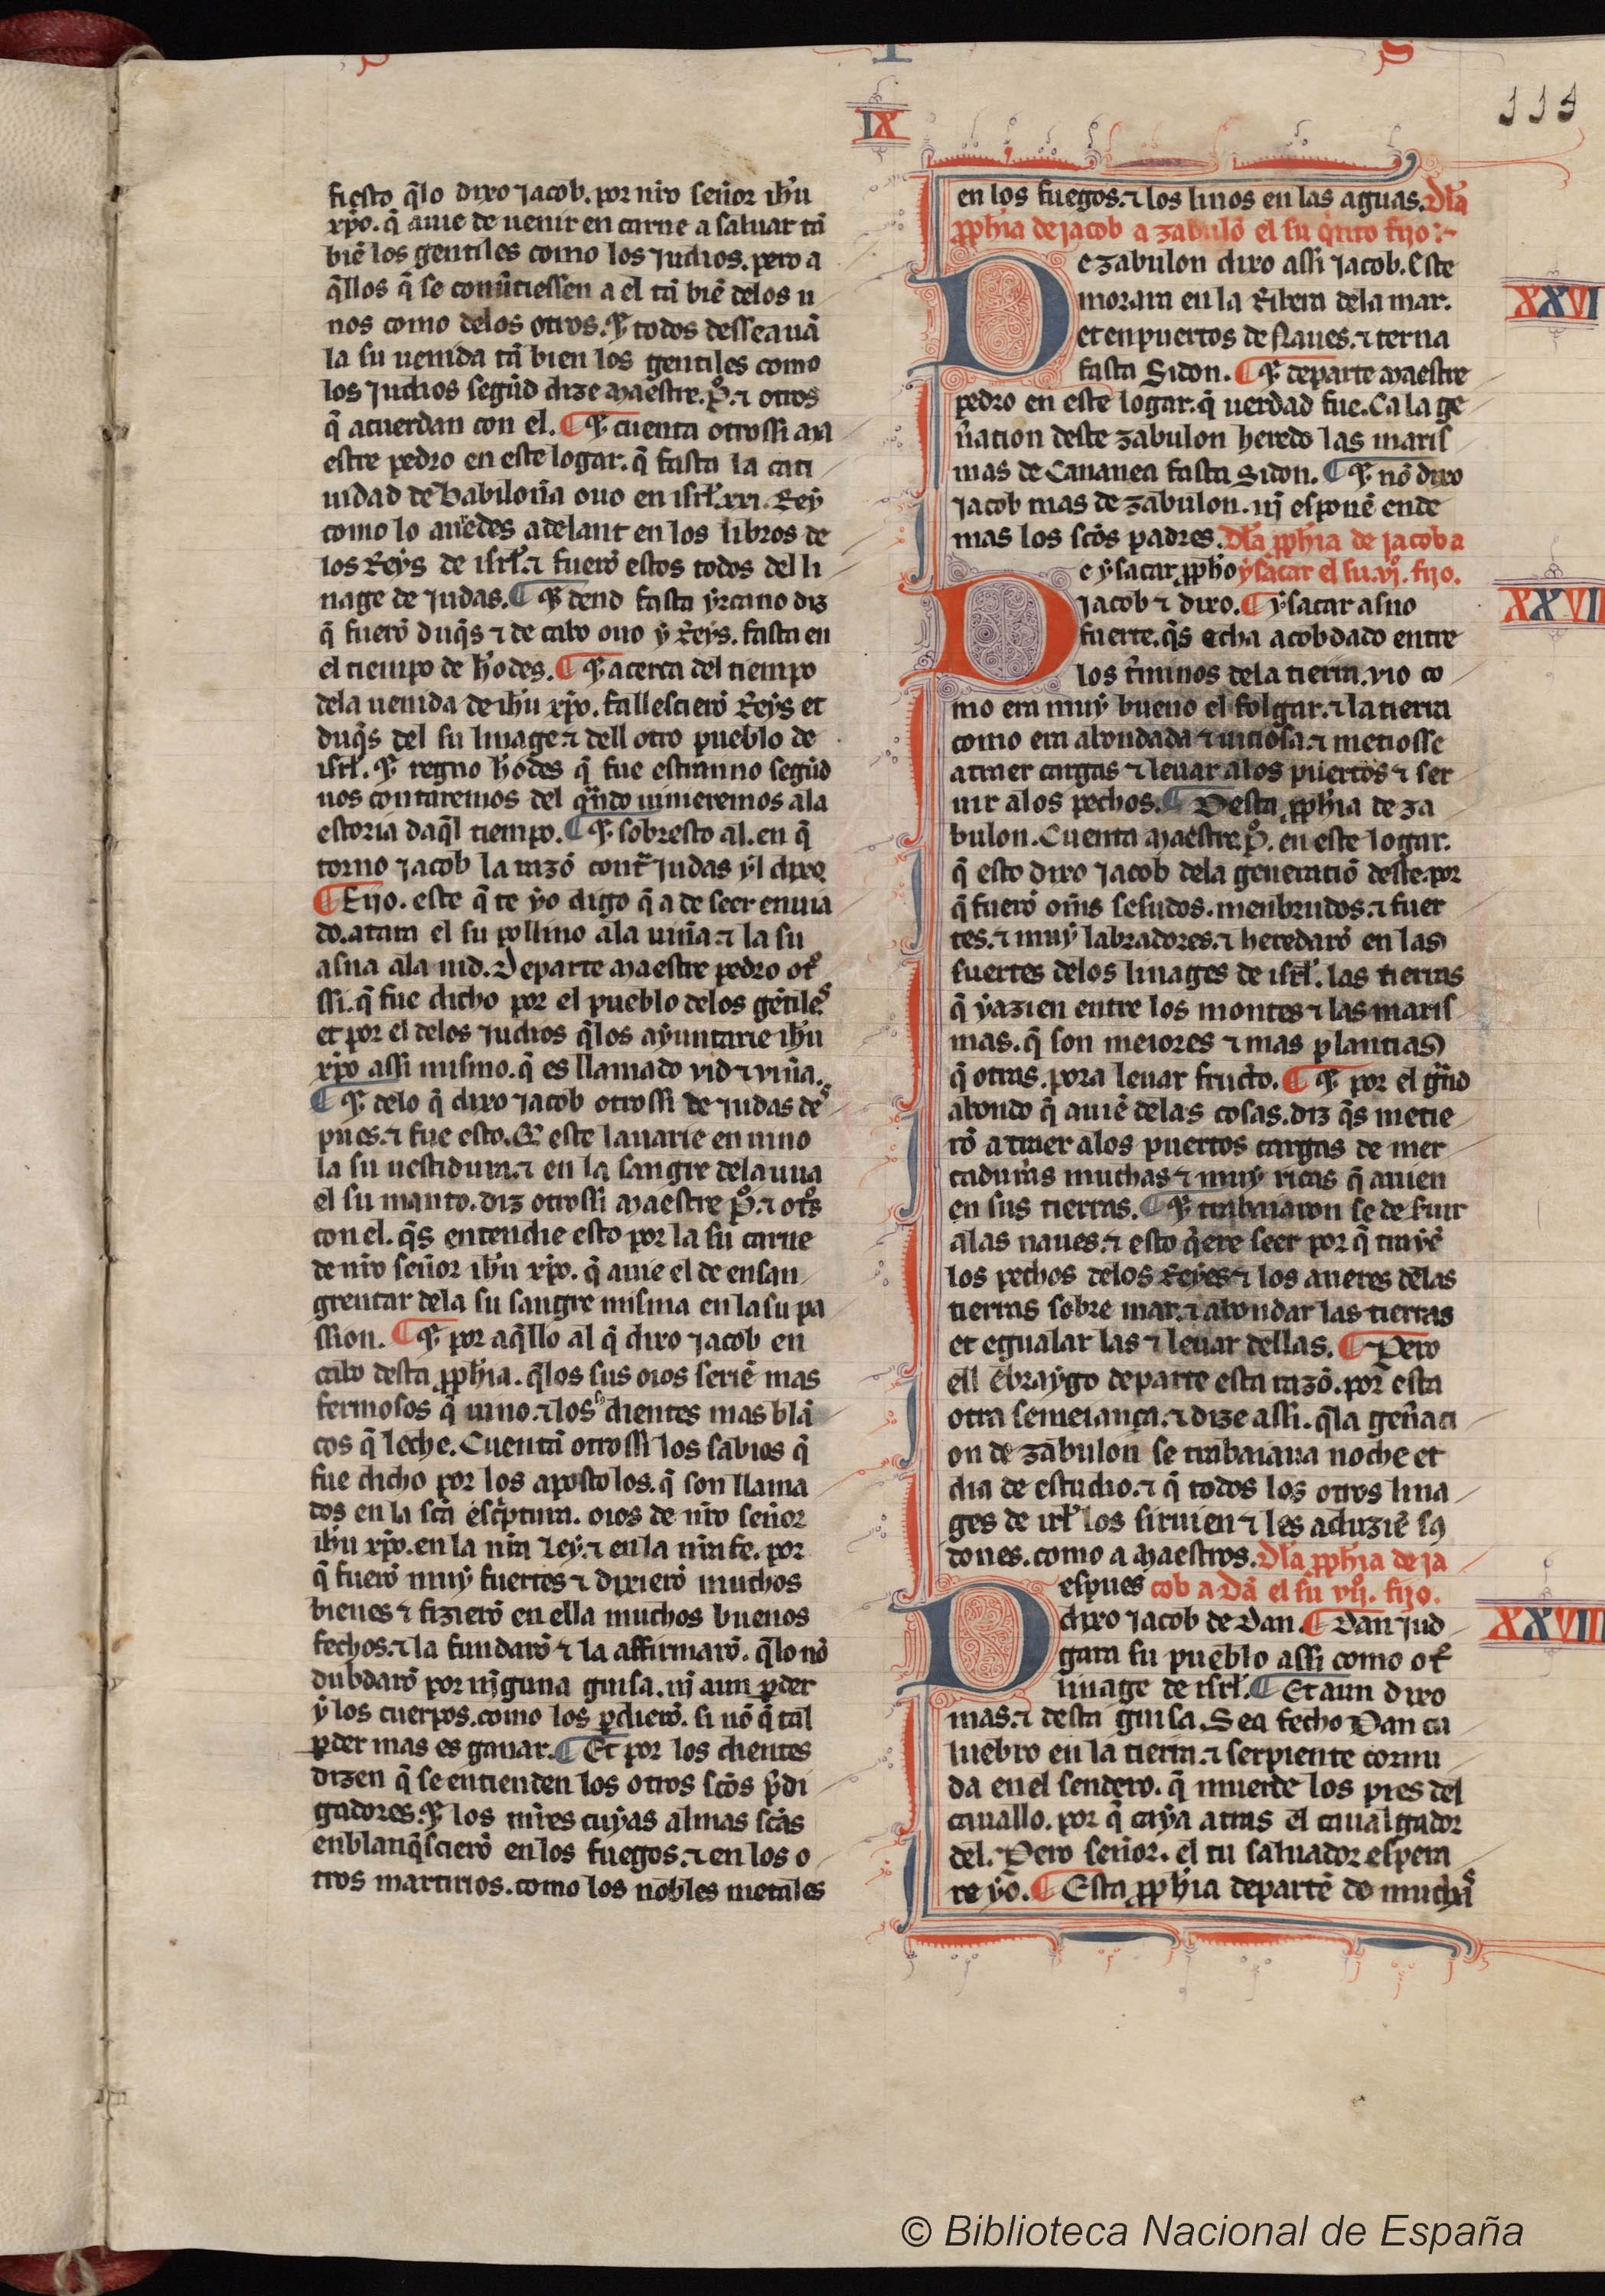 IX
113
fiesto q̃lo dixo jacob. por nr̃o señor ih̃u
xp̃o. q̃ auie de uenir en carne a saluar tã
biẽ los gentiles como los judios. pero a
q̃llos q̃ se conũtiessen a el tã biẽ delos u
nos como delos otros. ⁊ todos desseauã
la su uenida tã bien los gentiles como
los judios segũd dize maestre. P̊. ⁊ otros
q̃ acuerdan con el. ¶ ⁊ cuenta otrossi ma
estre pedro en este logar. q̃ fasta la cati
uidad de babiloña ouo en isrł. xxi. Rey
como lo aũedes adelant en los libros de
los Reys de isrł. ⁊ fuerõ estos todos del li
nage de judas. ¶ ⁊ dend fasta yrcano diz
q̃ fuerõ duq̃s ⁊ de cabo ouo y Reys. fasta en
el tiempo de h̃odes. ¶ ⁊ acerca del tiempo
dela uenida de ih̃u xp̃o. fallescierõ Reys et
duq̃s del su linage ⁊ dell otro pueblo de
isrł. ⁊ regno h̃odes q̃ fue estranno segũd
uos contaremos del q̃ndo uinieremos ala
estoria daq̃l tiempo. ¶ ⁊ sobresto al. en q̃
torno jacob la razõ contr̃ judas yl dixo
¶ Fijo. este q̃ te yo digo q̃ a de seer enuia
do. atara el su pollino ala uiña. ⁊ la su
asna ala uid. Departe maestre pedro ot̃
ssi. q̃ fue dicho por el pueblo delos gẽtiles
et por el delos judios q̃los ayuntarie ih̃u
xp̃o assi mismo. q̃ es llamado vid ⁊ viña.
¶ ⁊ delo q̃ dixo jacob otrossi de judas des
pues. ⁊ fue esto. Q̃ este lauarie en uino
la su uestidura. ⁊ en la sangre dela uua
el su manto. diz otrossi maestre P̊. ⁊ ot̃s
con el. q̃s entendie esto por la su carne
de nr̃o señor ih̃u xp̃o. q̃ auie el de ensan
grentar dela su sangre misma en la su pa
ssion. ¶ ⁊ por aq̃llo al q̃ dixo jacob en
cabo desta ꝓph̃ia. q̃los sus oios seriẽ mas
fermosos q̃ uino. ⁊ los s9 dientes mas blã
cos q̃ leche. Cuentã otrossi los sabios q̃
fue dicho por los apostolos. q̃ son llama
dos en la sc̃a esc̃ptura. oios de nr̃o señor
ih̃u xp̃o. en la nr̃a Ley. ⁊ en la nr̃a fe. por
q̃ fuerõ muy fuertes ⁊ dixierõ muchos
bienes ⁊ fizierõ en ella muchos buenos
fechos. ⁊ la fundarõ ⁊ la affirmarõ. q̃lo nõ
dubdarõ por nįguna guisa. nį aun ꝑder
y los cuerpos. como los ꝑdierõ. si nõ q̃ tal
ꝑder mas es ganar. ¶ Et por los dientes
dizen q̃ se entienden los otros sc̃os p̃di
gadores. ⁊ los mr̃es cuyas almas sc̃as
enblanq̃scierõ en los fuegos. ⁊ en los o
tros martirios. como los nobles metales
en los fuegos. ⁊ los linos en las aguas. Dł̃a
ꝓph̃ia de jacob a zabulõ el su q̃nto fijo:~
De zabulon dixo assi jacob. Este
morara en la Ribera dela mar.
et en puertos de Naues. ⁊ terna
fasta Sidon. ¶ ⁊ departe maestre
pedro en este logar. q̃ uerdad fue. Ca la ge
ñacion deste zabulon heredo las maris
mas de Cananea fasta Sidon. ¶ ⁊ nõ dixo
jacob mas de zabulon. nį esponẽ ende
mas los sc̃os padres. Dł̃a ꝓph̃ia de jacob a
De ysacar ꝓph̃o ysacar el su. vjº. fijo.
jacob ⁊ dixo. ¶ ysacar asno
fuerte. q̃s echa acobdado entre
los t̃minos dela tierra. vio co
mo era muy bueno el folgar. ⁊ la tierra
como era abondada ⁊ uiciosa. ⁊ metiosse
a traer cargas ⁊ leuar alos puertos ⁊ ser
uir alos pechos. ¶ Desta ꝓph̃ia de za
bulon. Cuenta maestre. P̊. en este logar.
q̃ esto dixo jacob dela generaciõ deste. por
q̃ fuerõ om̃s sesudos. menbrudos. ⁊ fuer
tes. ⁊ muy labradores. ⁊ heredarõ en las
suertes delos linages de isrł. las tierras
q̃ yazien entre los montes ⁊ las maris
mas. q̃ son meiores ⁊ mas plantias
q̃ otras. pora leuar fructo. ¶ ⁊ por el gr̃nd
abondo q̃ auiẽ delas cosas. diz q̃s metie
rõ a traer alos puertos cargas de mer
cadur̃as muchas ⁊ muy ricas q̃ auien
en sus tierras. ¶ ⁊ trabaiaron se de suir
alas naues. ⁊ esto q̃ere seer por q̃ trayẽ
los pechos delos Reyes ⁊ los aueres delas
tierras sobre mar. ⁊ abondar las tierras
et egualar las ⁊ leuar dellas. ¶ Pero
ell ebraygo departe esta razõ. por esta
otra semeiança. ⁊ dize assi. q̃la geñaci
on de zabulon se trabaiaua noche et
dia de estudio. ⁊ q̃ todos los otros lina
ges de irł los siruien ⁊ les aduziẽ sus
dones. como a maestros. Dł̃a ꝓph̃ia de ja
Despues cob a Dã el su vijº. fijo.
dixo jacob de Dan. ¶ Dan jud
gara su pueblo assi como ot̃
linage de isrł. ¶ Et aun dixo
mas. ⁊ desta guisa. Sea fecho Dan cu
luebro en la tierra. ⁊ serpiente cornu
da en el sendero. q̃ muerde los pies del
cauallo. por q̃ caya atras el caualgador
del. Pero señor. el tu saluador espera
re yo. ¶ Esta ꝓph̃ia departẽ do muchas
XXVI
XXVII
XXVIII
© Biblioteca Nacional de España